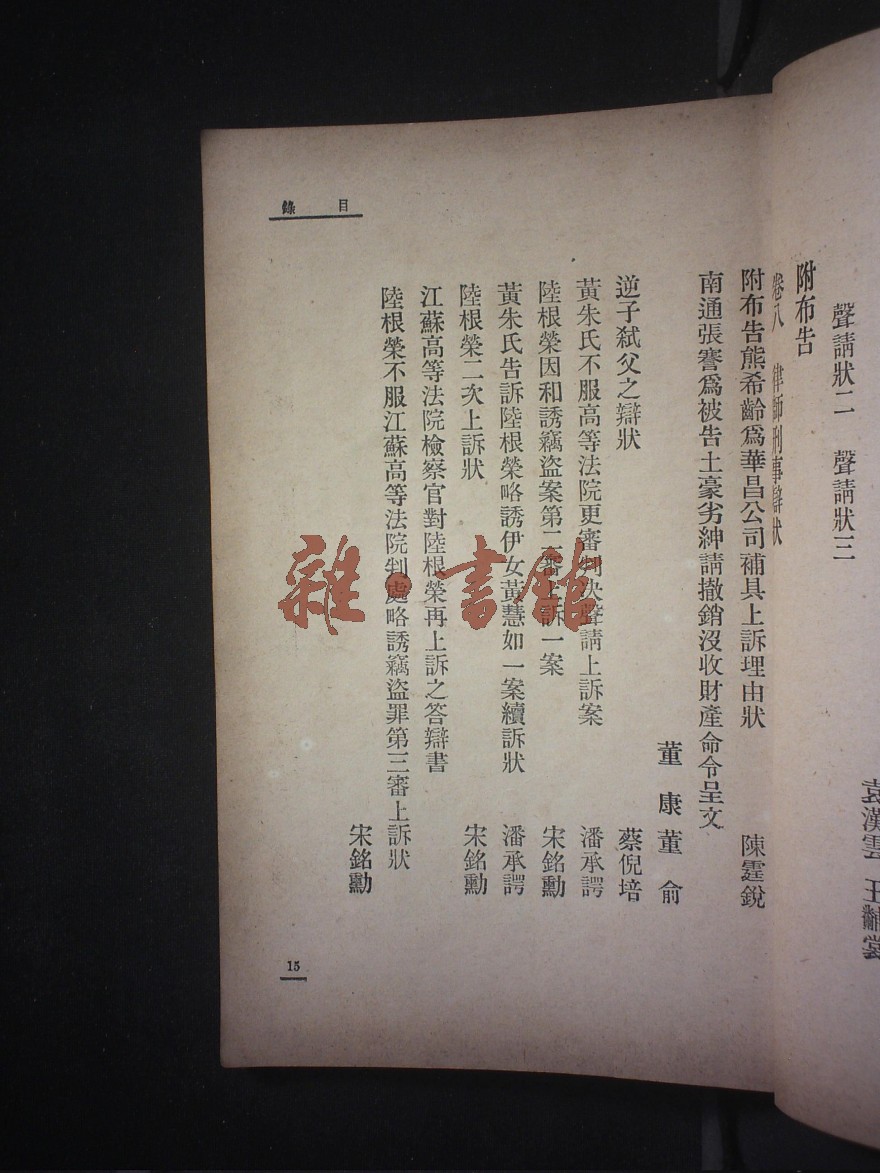 聲請狀二　聲請狀三
袁漢雲　王黼裳
附布告
卷八　律師刑事辯狀
附布告熊希齡爲華昌公司補具上訴理由狀　陳霆銳
南通張謇爲被告土豪劣紳請撤銷沒收財產命令呈文
董康　董俞
逆子弒父之辯狀　蔡倪培
黃朱氏不服高等法院更審判決聲請上訴案　潘承諤
陸根榮因和誘竊盜案第二審上訴一案　宋銘勳
黃朱氏告訴陸根榮略誘伊女黃慧如一案續訴狀　潘承諤
陸根榮二次上訴狀　宋銘勳
江蘇高等法院檢察官對陸根榮再上訴之答辯書
陸根榮不服江蘇高等法院判處略誘竊盜罪第三審上訴狀
宋銘勳
目錄
15
雜·書館